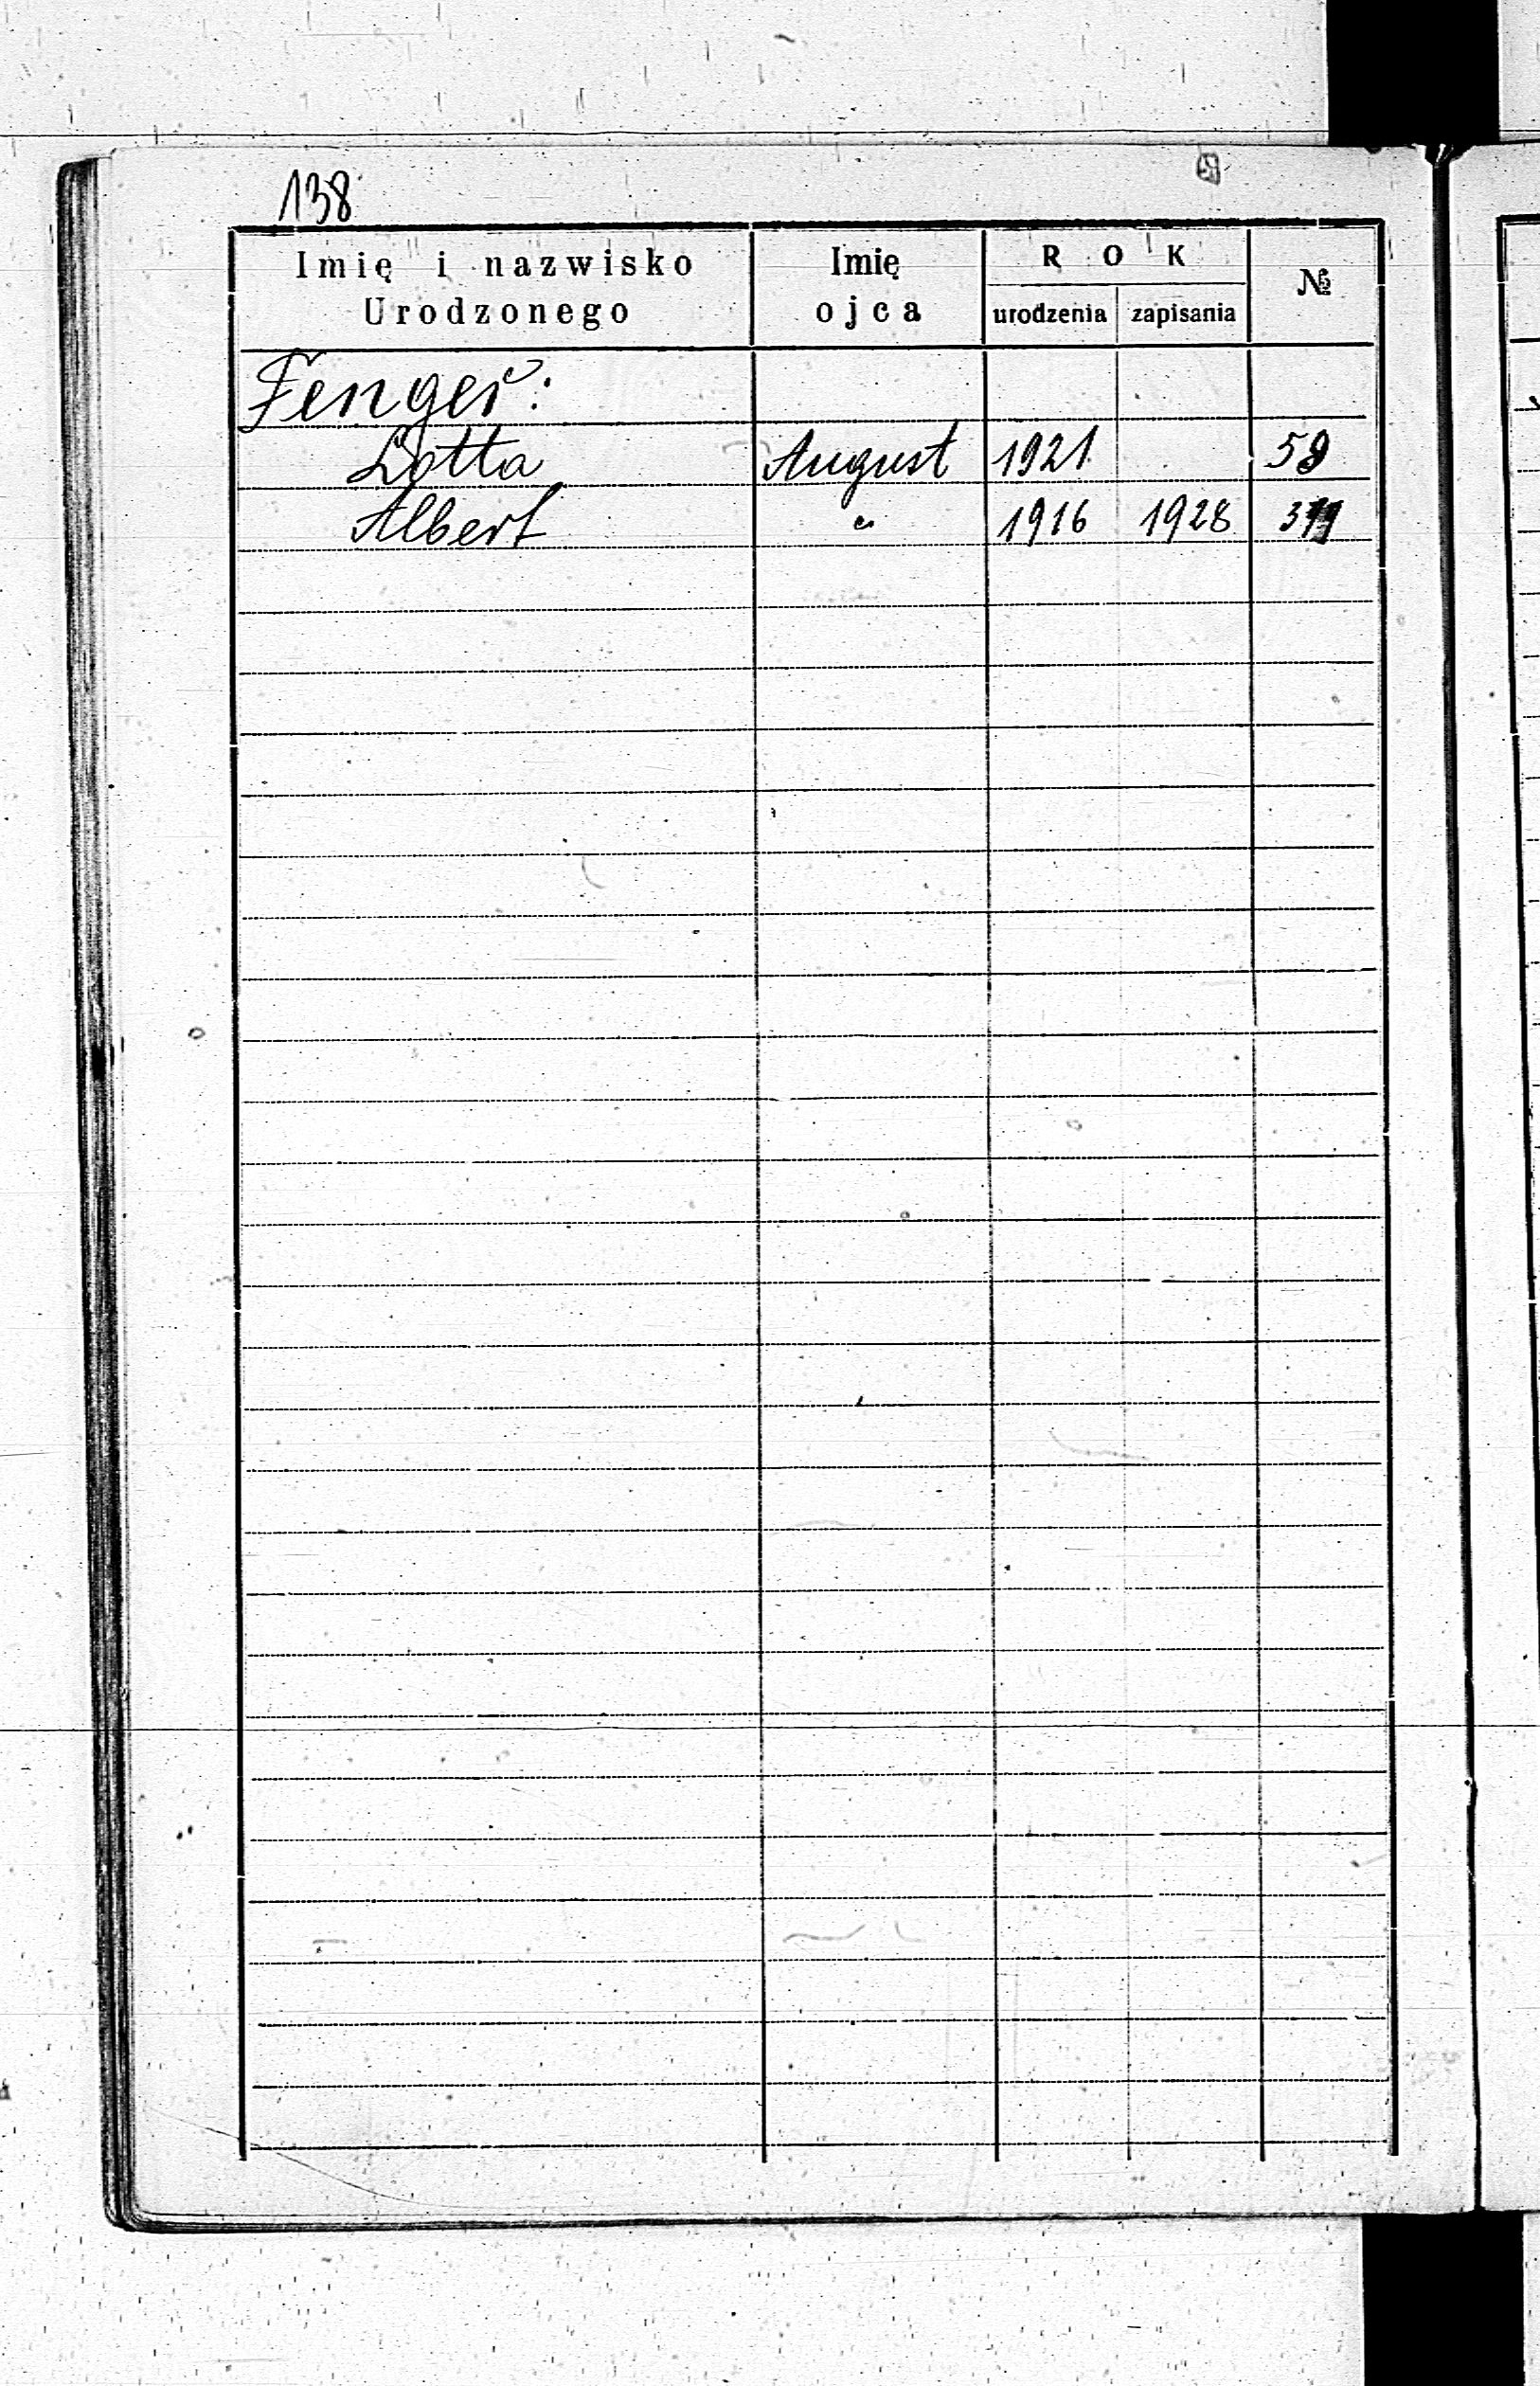 138
Imię i nazwisko Urodzonego Imię ojca ROK urodzenia zapisania №
Fenger:
Lotta August 1921 59
Albert " 1916 1928